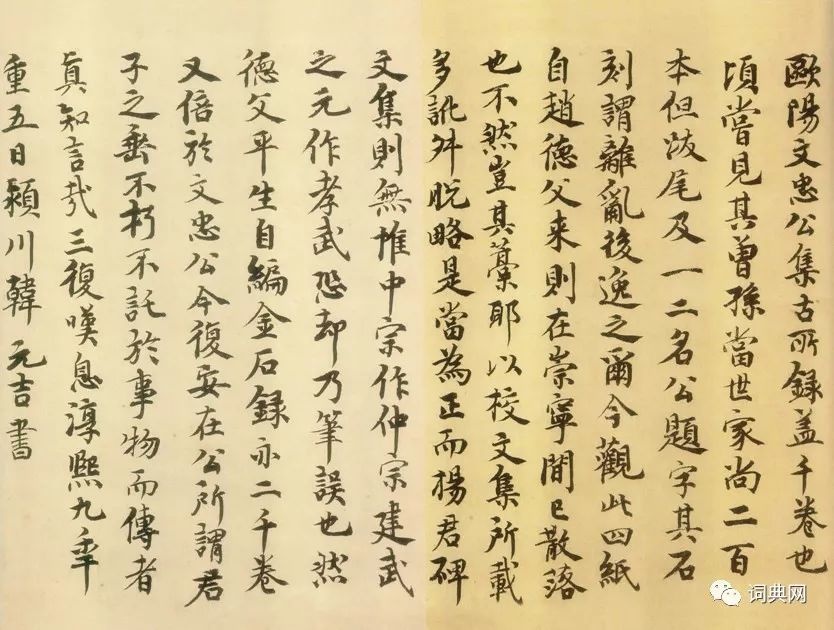 歐陽文忠公集古所錄盖千卷也
頃嘗見其曽孫當世家尚二百
本但跋尾及一二名公題字其石
刻謂離亂後逸之爾今觀此四紙
自趙德父来則在崇寧間已散落
也不然豈其藁耶以校文集所載
多訛舛脱略是當為正而楊君碑
文集則無惟中宗作仲宗建武
之元作孝武恐却乃筆誤也然
德父平生自編金石録亦二千卷
又倍於文忠公今復安在公所謂君
子之垂不朽不託於事物而傳者
真知言哉三復嘆息淳熙九年
重五日潁川韓元吉書
词典网